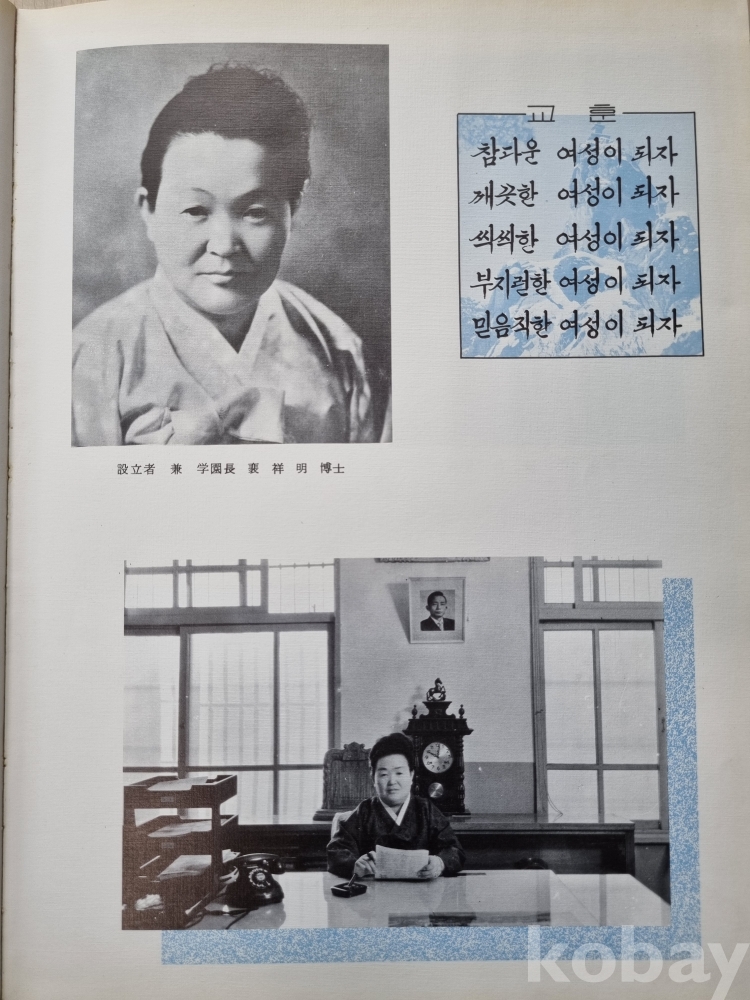 교 훈
참다운 여성이 되자
깨끗한 여성이 되자
씩씩한 여성이 되자
부지런한 여성이 되자
믿음직한 여성이 되자
設立者 兼 学園長 裵 祥 明 博士
kobay